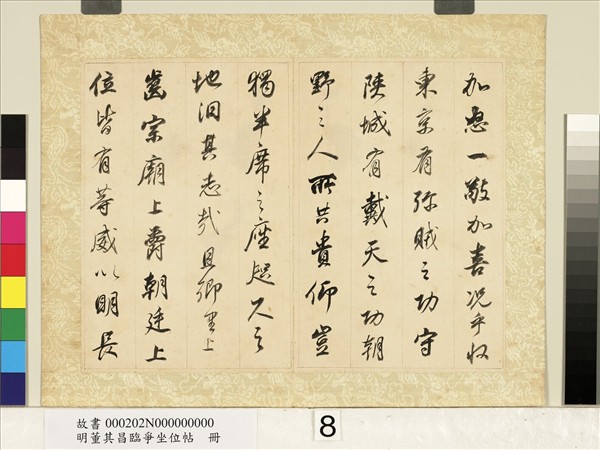 加怒一敬加喜況乎收
東京有殄賊之功守
陝城有戴天之功朝
野之人所共貴仰豈
獨半席之座咫尺之
地汩其志哉且鄉里上
齒宗廟上爵朝廷上
位皆有等威以明長
故書 000202N000000000
明董其昌臨爭坐位帖 冊
8